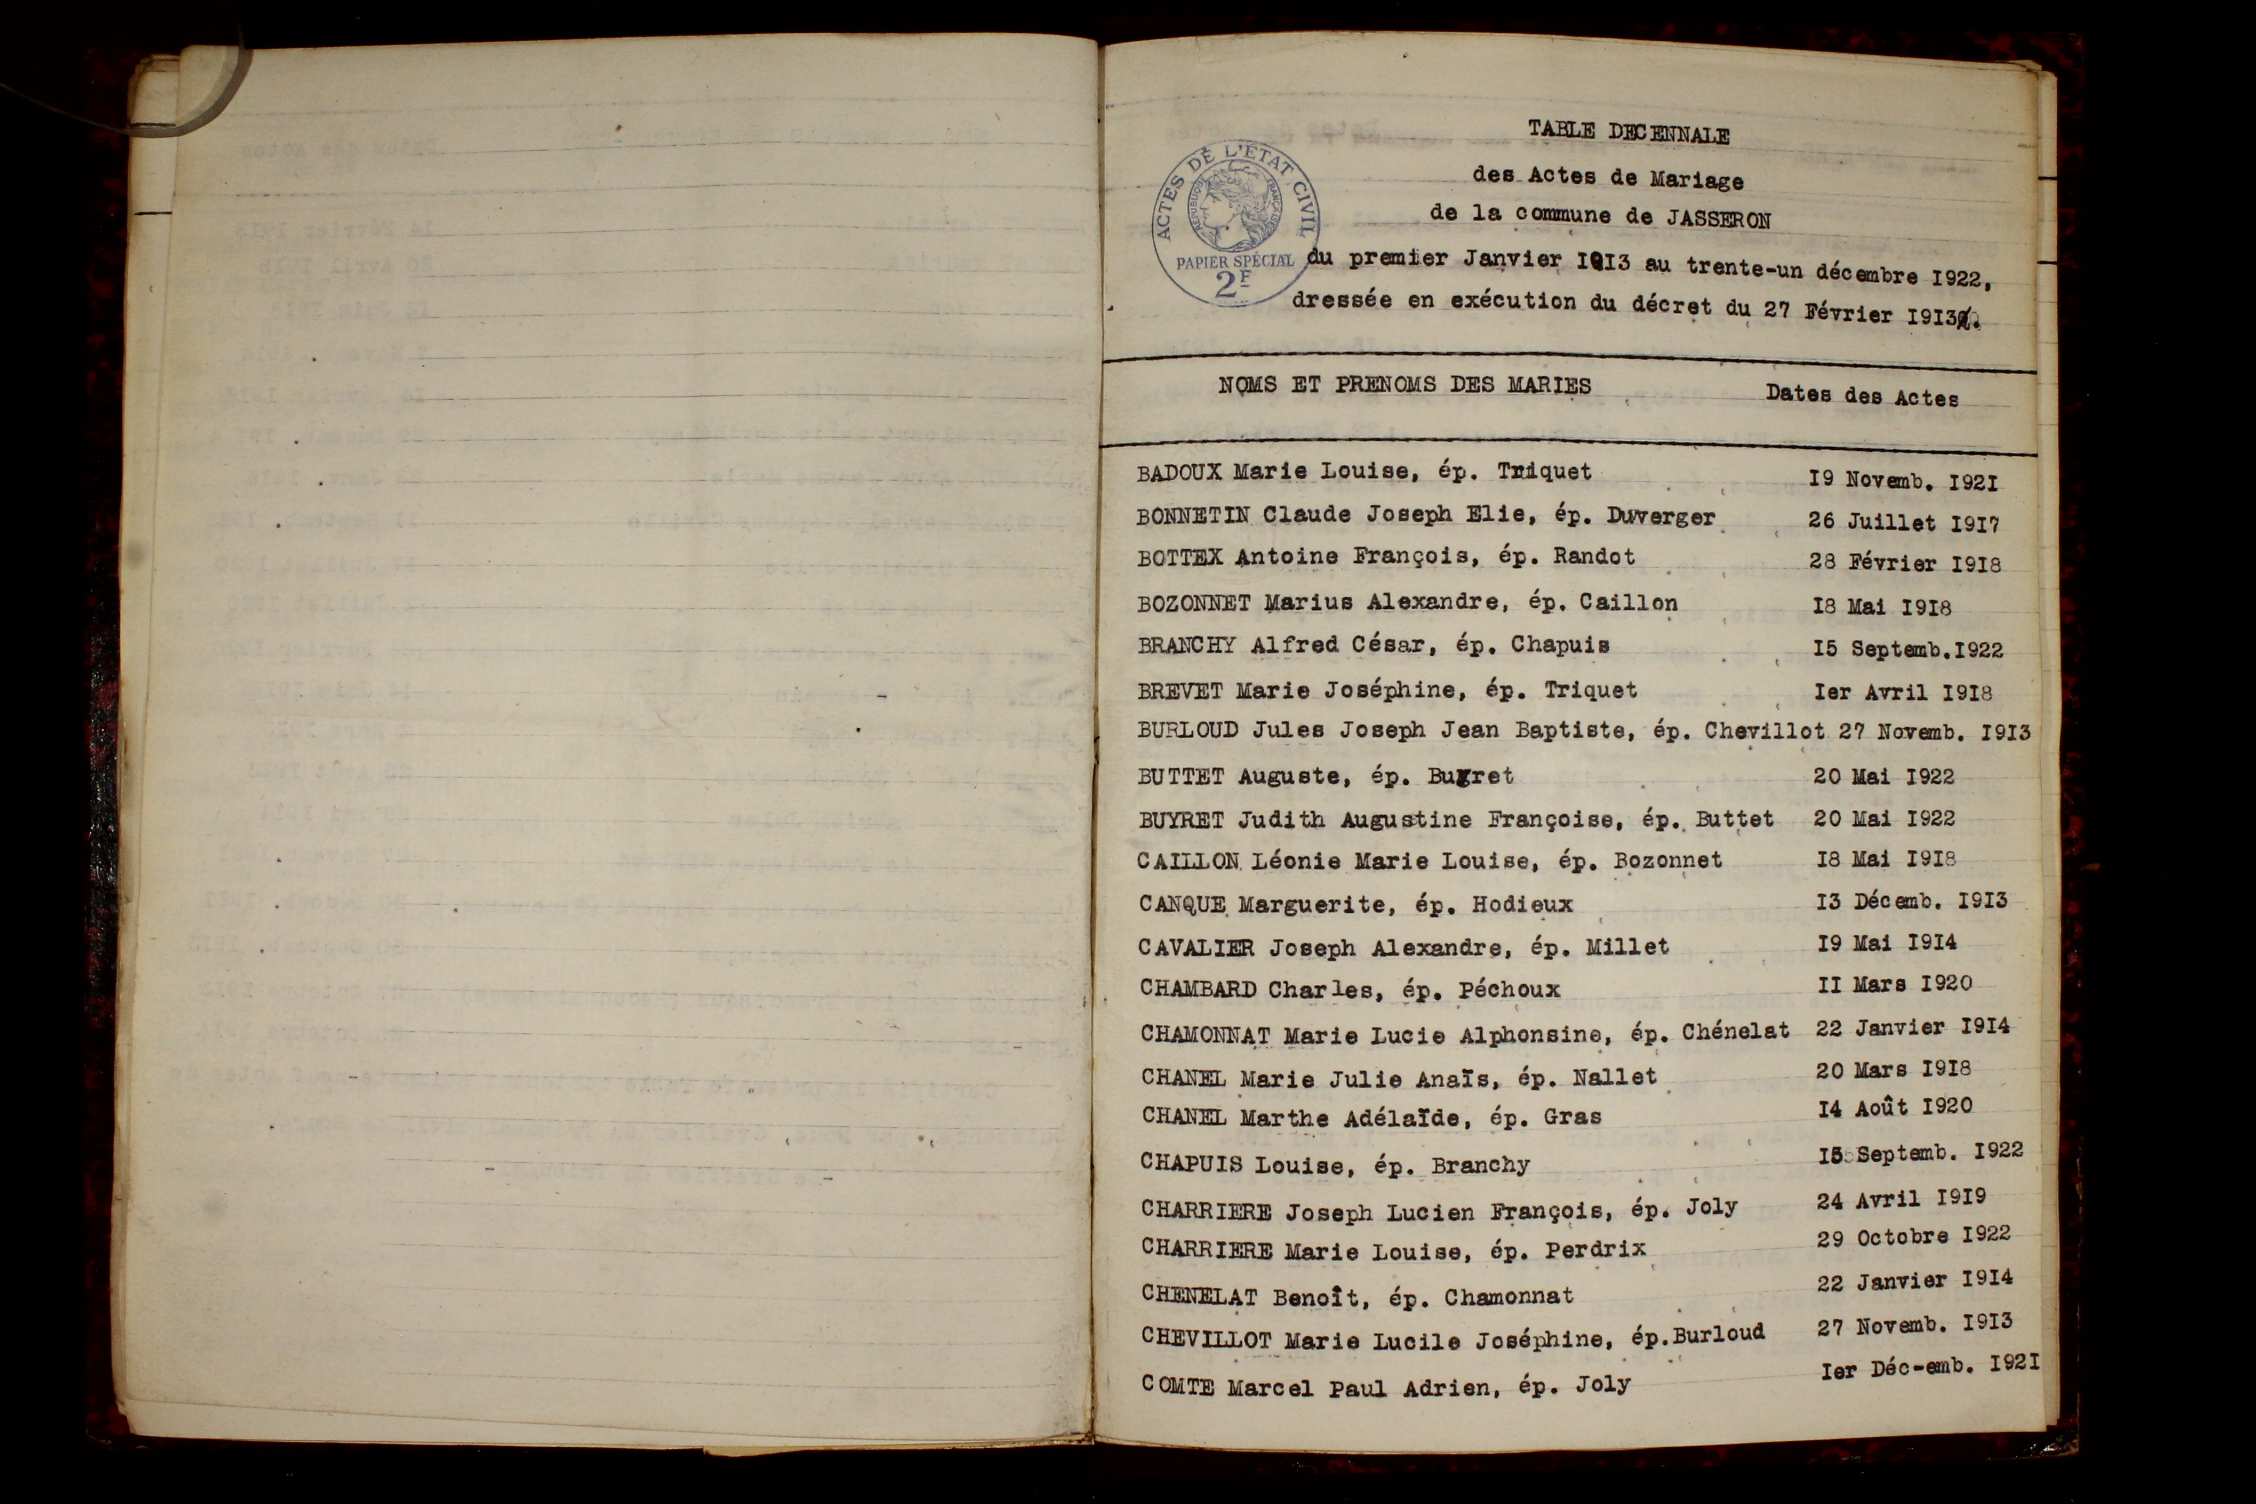 TABLE DECENNALE
des Actes de Mariage
de la commune de JASSERON
ACTES DE L'ETAT CIVIL
REPUBLIQUE FRANÇAISE
PAPIER SPÉCIAL
2F
du premier Janvier I9I3 au trente-un décembre I922,
dressée en exécution du décret du 27 Février I9I3.
NOMS ET PRENOMS DES MARIES Dates des Actes
BADOUX Marie Louise, ép. Triquet I9 Novemb. I92I
BONNETIN Claude Joseph Elie, ép. Duverger 26 Juillet I9I7
BOTTEX Antoine François, ép. Randot 28 Février I9I8
BOZONNET Marius Alexandre, ép. Caillon I8 Mai I9I8
BRANCHY Alfred César, ép. Chapuis I5 Septemb.I922
BREVET Marie Joséphine, ép. Triquet Ier Avril I9I8
BURLOUD Jules Joseph Jean Baptiste, ép. Chevillot 27 Novemb. I9I3
BUTTET Auguste, ép. Buyret 20 Mai I922
BUYRET Judith Augustine Françoise, ép. Buttet 20 Mai I922
CAILLON Léonie Marie Louise, ép. Bozonnet I8 Mai I9I8
CANQUE Marguerite, ép. Hodieux I3 Décemb. I9I3
CAVALIER Joseph Alexandre, ép. Millet I9 Mai I9I4
CHAMBARD Charles, ép. Péchoux II Mars I920
CHAMONNAT Marie Lucie Alphonsine, ép. Chénelat 22 Janvier I9I4
CHANEL Marie Julie Anaïs, ép. Nallet 20 Mars I9I8
CHANEL Marthe Adélaïde, ép. Gras I4 Août I920
CHAPUIS Louise, ép. Branchy I5 Septemb. I922
CHARRIERE Joseph Lucien François, ép. Joly 24 Avril I9I9
CHARRIERE Marie Louise, ép. Perdrix 29 Octobre I922
CHENELAT Benoît, ép. Chamonnat 22 Janvier I9I4
CHEVILLOT Marie Lucile Joséphine, ép.Burloud 27 Novemb. I9I3
COMTE Marcel Paul Adrien, ép. Joly Ier Déc-emb. I92I